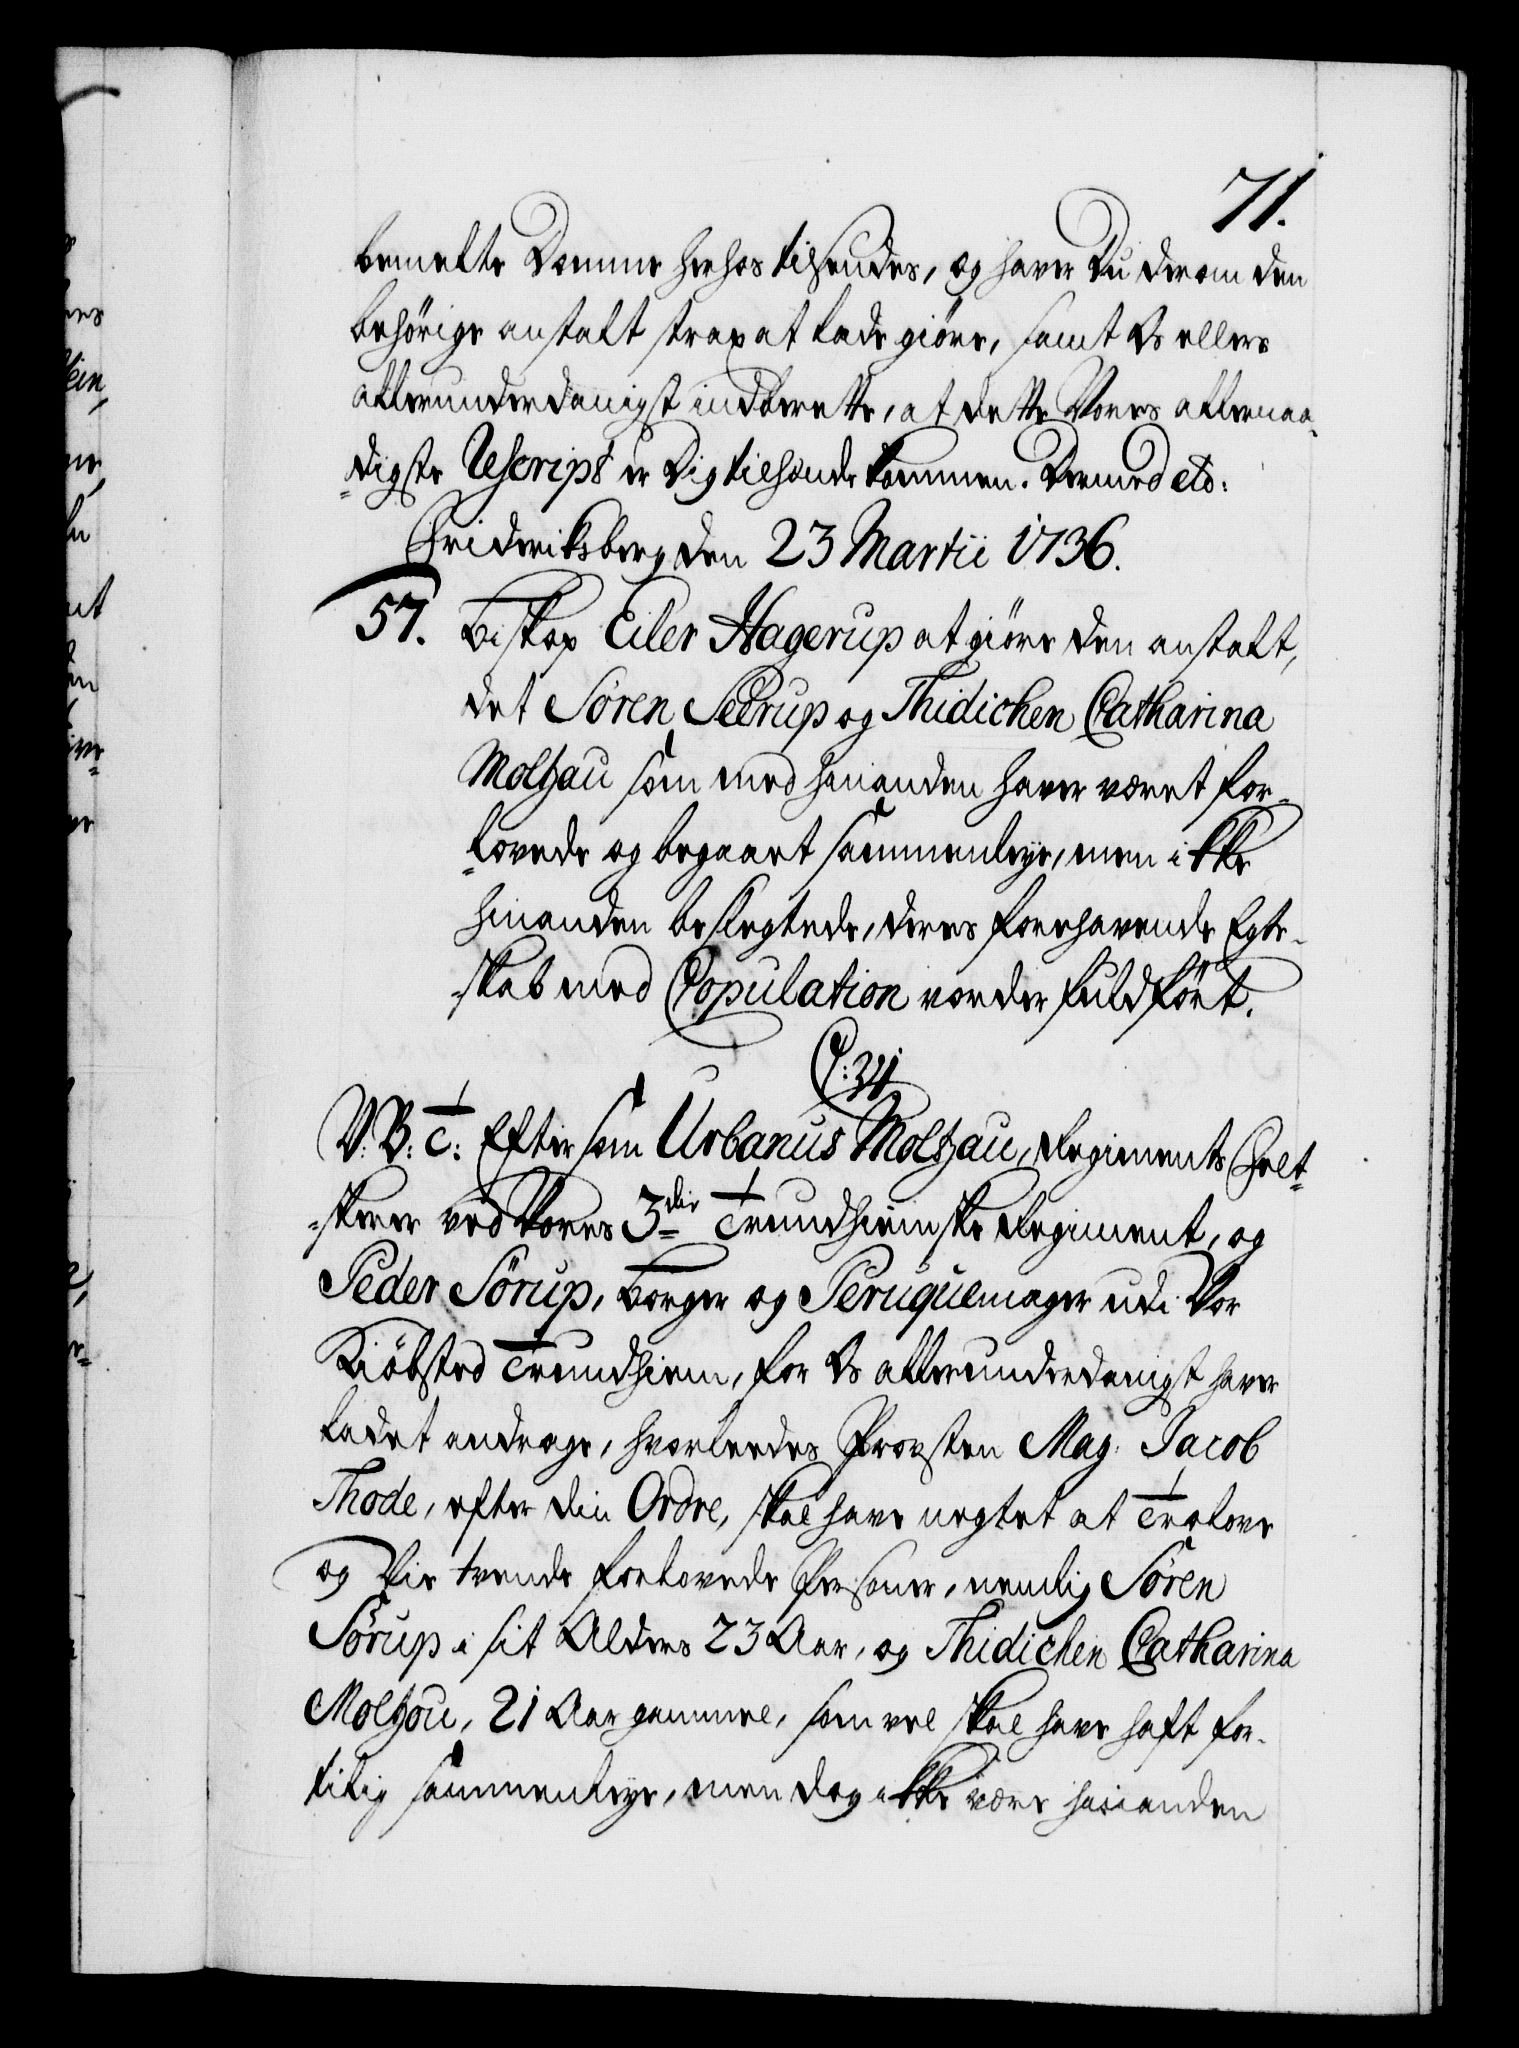 71.
bemelte Domme herhos tilsendes, og haver Du derom den
behörige anstalt strax at lade giöre, samt Os ellers
allerunderdanigst indberette, at dette Vores allernaa-
digste Rescript er Dig tilhænde kommen. Dermed etc:
Friderichsberg den 23 Martii 1736.
57. Biskop Eiler Hagerup at giöre den anstalt,
det Sören Sörup og Thidichen Catharina
Moltzau som med hinanden haver været for-
lovede og begaaet sammenleye, men ikke
hinanden beslegtede, deres forehavende Egte-
skab med Copulation vorder fuldfört.
C: 34
V: B: T: Eftersom Urbanus Moltzau, Regiments Felt-
skerer ved Vores 3die Trundhiemske Regiment, og
Peder Sörup, borger og Peruquemager udi Vor
Kiöbsted Trundhiem, for Os allerunderdanigst haver
ladet andrage, hvorledes Provsten Mag. Jacob
Thode, efter din Ordre, skal have negtet at Troelove
og Vie tvende forlovede Personer, nemlig Sören
Sörup i sit Alders 23 Aar, og Thidichen Catharina
Moltzou, 21 Aar gammel, som vel skal have haft for-
tilig sammenleye, men dog ikke være hinanden